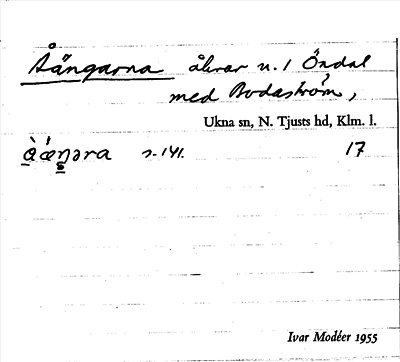 Åängarna åkrar u. / Öndal
med Bodaström,
Ukna sn, N. Tjusts hd, Klm. l.
å̀ǽŋəra s. 141. 17
Ivar Modéer 1955